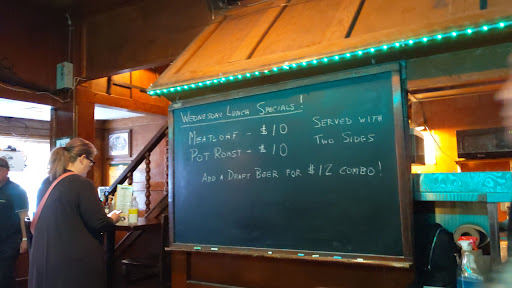 Wednesday Lunch Specials!
Meatloaf - $10
Pot Roast - $10
Served with
Two Sides
Add a Draft Beer for $12 combo!